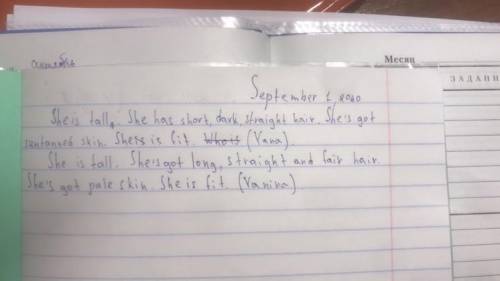 Месяц
ЗАДАНИ
September 1, 2020
She is tall. She has short, dark, straight hair. She's got
suntanned skin. She is fit. Who is (Yana)
She is tall. She's got long, straight and fair hair.
She's got pale skin. She is fit. (Yanina)